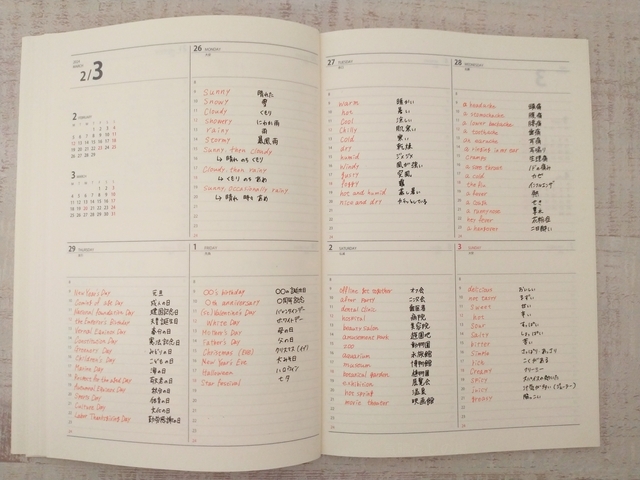 2/3
26 MONDAY
Sunny 晴れた
Snowy 雪
Cloudy くもり
Showery にわか雨
rainy 雨
Stormy 暴風雨
Sunny, then cloudy
↳ 晴れ のち くもり
Cloudy, then rainy
↳ くもり のち あめ
Sunny, occasionally rainy
↳ 晴れ 時々 あめ
2 FEBRUARY
3 MARCH
27 TUESDAY
warm 暖かい
hot 暑い
Cool 涼しい
Chilly 肌寒い
Cold 寒い
dry 乾燥
humid ジメジメ
windy 風が強い
gusty 突風
foggy 霧
hot and humid 蒸し暑い
nice and dry
28 WEDNESDAY
a headache 頭痛
a stomachache 腹痛
a lower backache 腰痛
a toothache 歯痛
an earache 耳痛
a ringing in my ear 耳鳴り
cramps 生理痛
a sore throat
a cold かぜ
the flu インフルエンザ
a fever 熱
a cough せき
a runny nose 鼻水
hay fever 花粉症
a hangover 二日酔い
29 THURSDAY
New Year's Day 元旦
Coming of Age Day 成人の日
National Foundation Day 建国記念日
the Emperor's Birthday 天皇誕生日
Vernal Equinox Day 春分の日
Constitution Day 憲法記念日
Greenery Day みどりの日
Children's Day こどもの日
Marine Day 海の日
Respect for the Aged Day 敬老の日
Autumnal Equinox Day 秋分の日
Sports Day 体育の日
Culture Day 文化の日
Labor Thanksgiving Day 勤労感謝の日
1 FRIDAY
○○'s birthday ○○の誕生日
○th anniversary ○周年記念
(St.)Valentine's Day バレンタインデー
White Day ホワイトデー
Mother's Day 母の日
Father's Day 父の日
Christmas (Eve) クリスマス(イブ)
New Year's Eve 大みそか
Halloween ハロウィン
Star Festival 七夕
2 SATURDAY
offline get together オフ会
after party 二次会
dental clinic 歯医者
hospital 病院
beauty salon 美容院
amusement park 遊園地
zoo 動物園
aquarium 水族館
museum 博物館
botanical garden 植物園
exhibition 展覧会
hot spring 温泉
movie theater 映画館
3 SUNDAY
delicious おいしい
not tasty まずい
sweet 甘い
hot 辛い
sour すっぱい
salty しょっぱい
bitter 苦い
simple さっぱり、あっさり
rich こくがある
creamy クリーミー
spicy スパイスの効いた
juicy
greasy 脂っこい